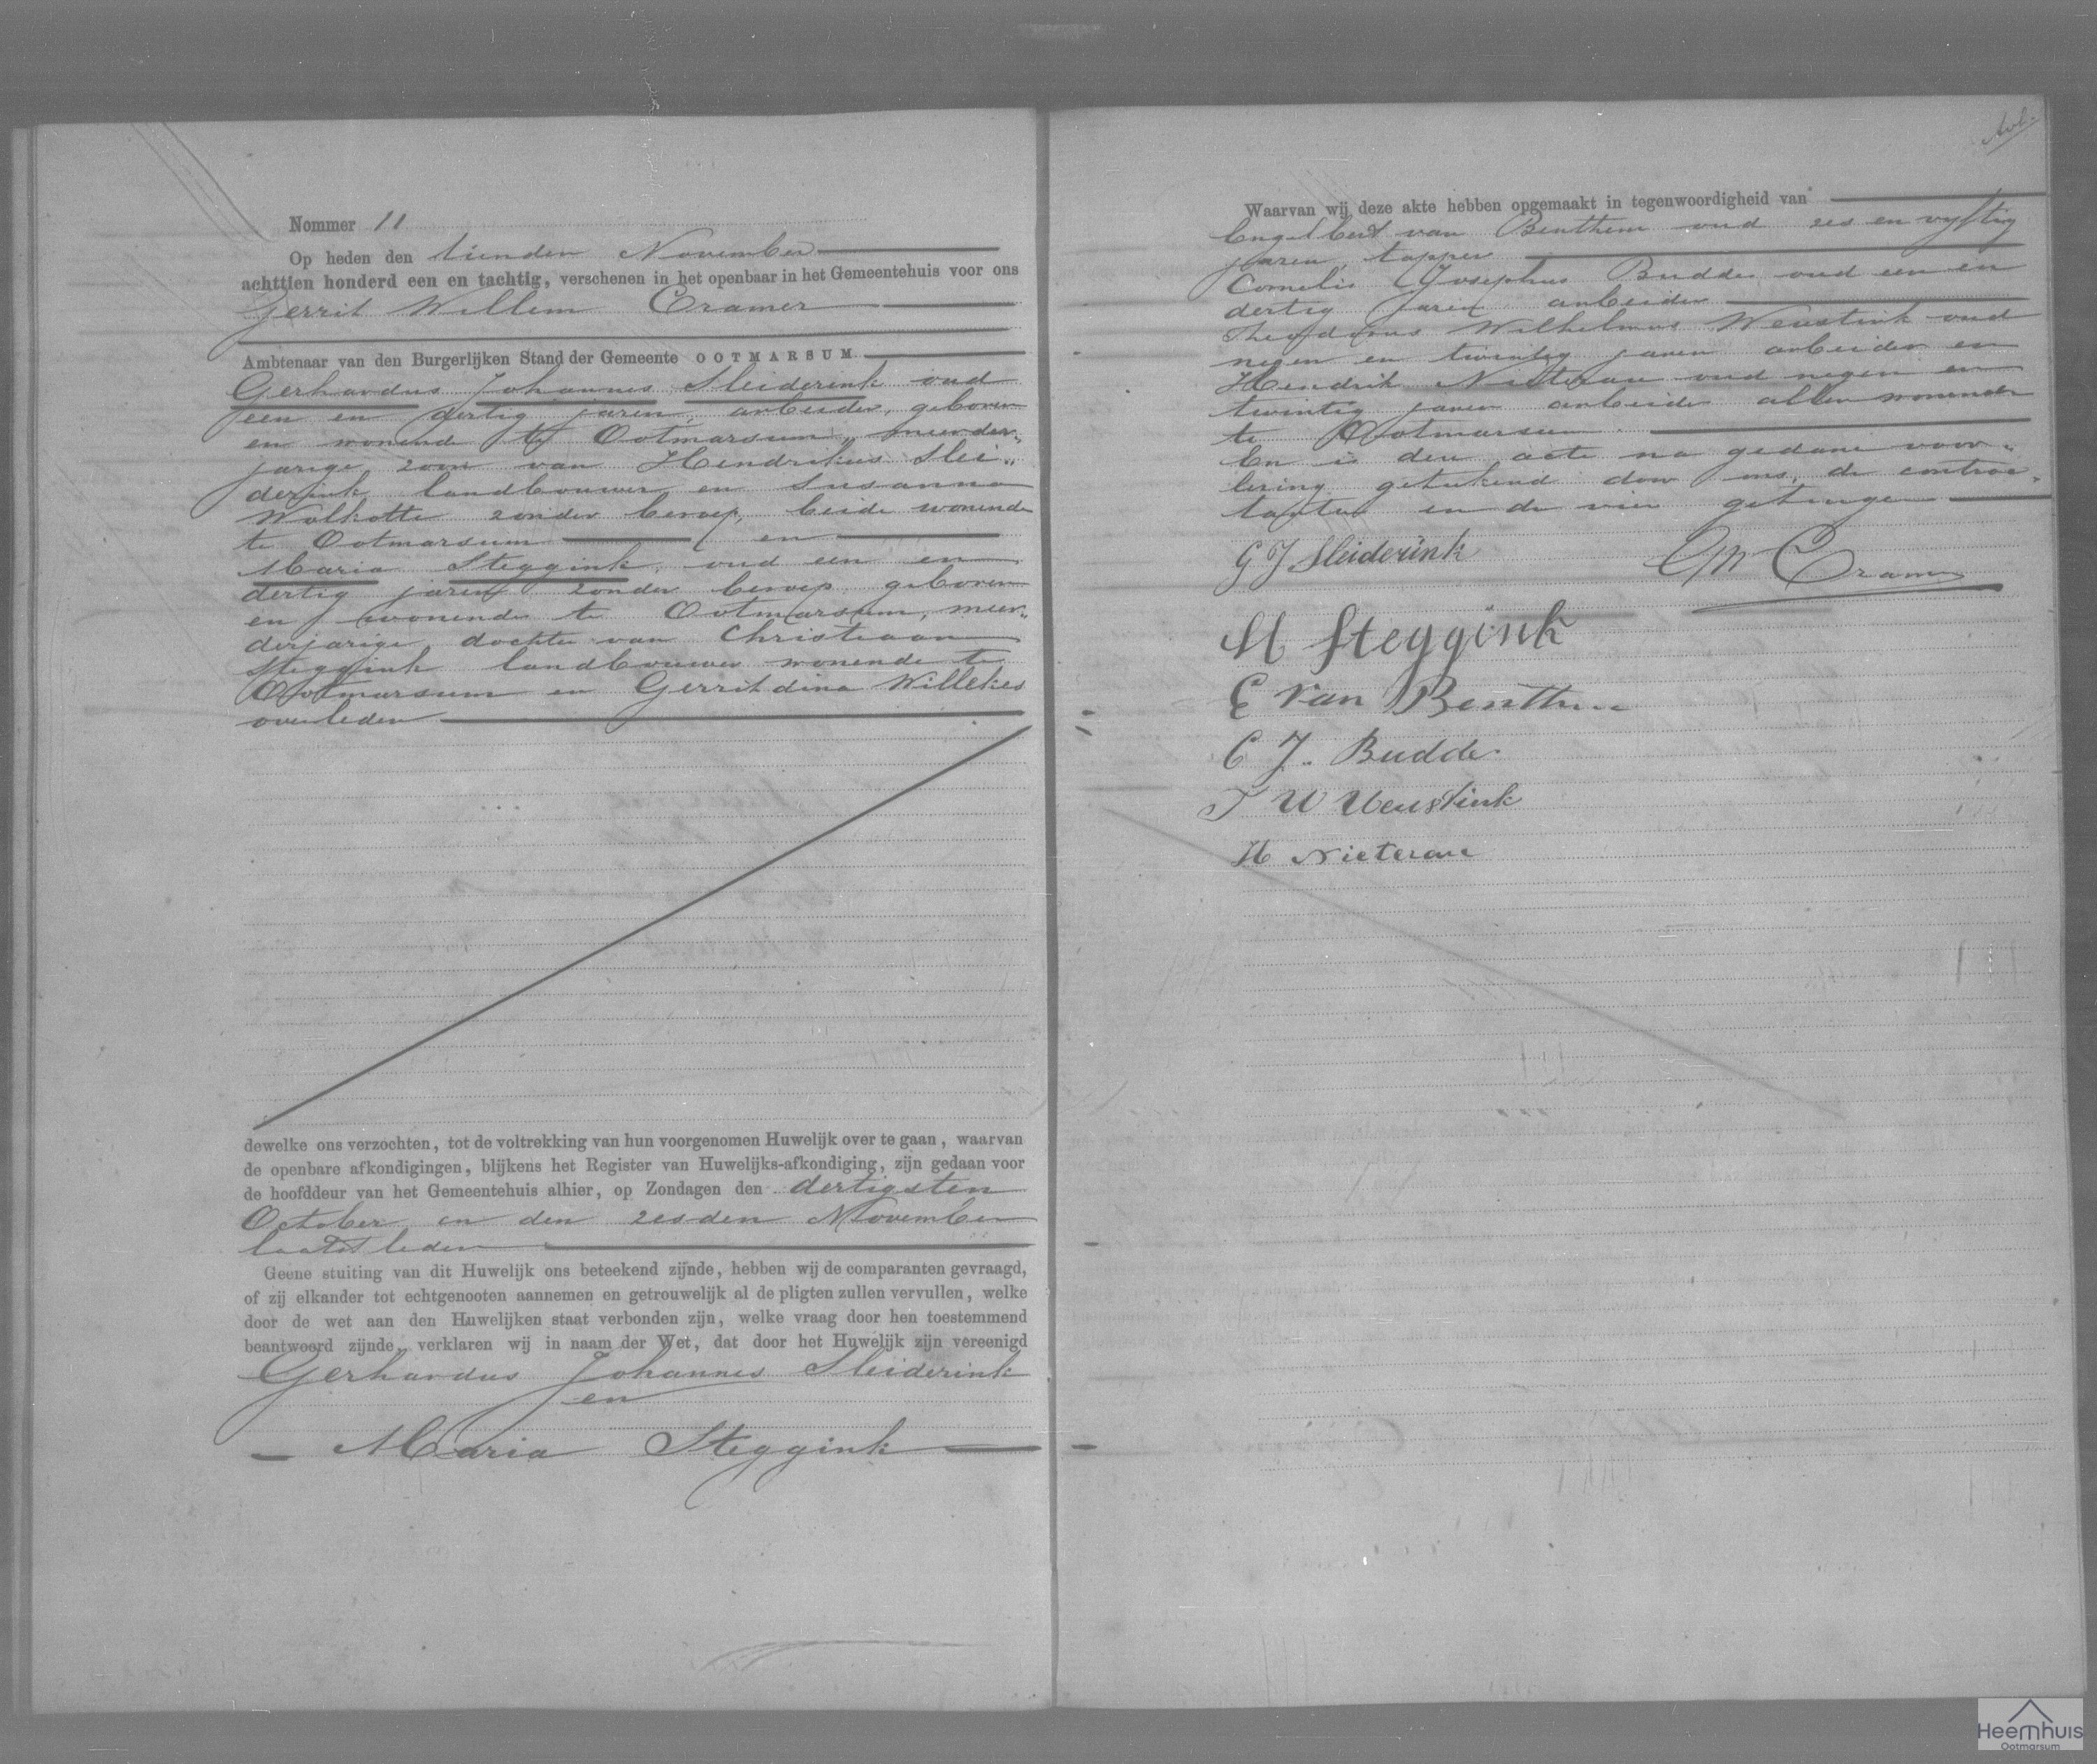 Nommer 11
Op heden den tienden November
achttien honderd een en tachtig, verschenen in het openbaar in het Gemeentehuis voor ons
Gerrit Willem Cramer
Ambtenaar van den Burgerlijken Stand der Gemeente OOTMARSUM
Gerhardus Johannes Sleiderink oud
een en dertig jaren, arbeider, geboren
en wonend te Ootmarsum, meerder„
jarige zoon van Hendrikus Slei„
derink landbouwer en Susanna
Wolkotte zonder beroep, beide wonende
te Ootmarsum en
Maria Steggink, oud een en
dertig jaren zonder beroep geboren
en wonende te Ootmarsum, meer„
derjarige dochter van Christiaan
Steggink landbouwer wonende te
Ootmarsum en Gerritdina Willekes
overleden
dewelke ons verzochten, tot de voltrekking van hun voorgenomen Huwelijk over te gaan, waarvan
de openbare afkondigingen, blijkens het Register van Huwelijks-afkondiging, zijn gedaan voor
de hoofddeur van het Gemeentehuis alhier, op Zondagen den dertigsten
October en den zesden November
laatstleden
Geene stuiting van dit Huwelijk ons beteekend zijnde, hebben wij de comparanten gevraagd,
of zij elkander tot echtgenooten aannemen en getrouwelijk al de pligten zullen vervullen, welke
door de wet aan den Huwelijken staat verbonden zijn, welke vraag door hen toestemmend
beantwoord zijnde, verklaren wij in naam der Wet, dat door het Huwelijk zijn vereenigd
Gerhardus Johannes Sleiderink
en
Maria Steggink
Waarvan wij deze akte hebben opgemaakt in tegenwoordigheid van
Engelbert van Benthem oud zes en vyftig
jaren, tapper
Cornelis Josephus Budde oud een en
dertig jaren arbeider
Theodorus Wilhelmus Weustink oud
negen en twintig jaren arbeider en
Hendrik Nieterau oud negen en
twintig jaren arbeider allen wonende
te Ootmarsum.
En is deze acte na gedane voor„
lezing geteekend door ons, de contrac„
tanten en de vier getuigen
G J Sleiderink
GW Cramer
M Steggink
E van Benthem
C J. Budde.
T W Weustink
H Nieterau
Heemhuis
Ootmarsum